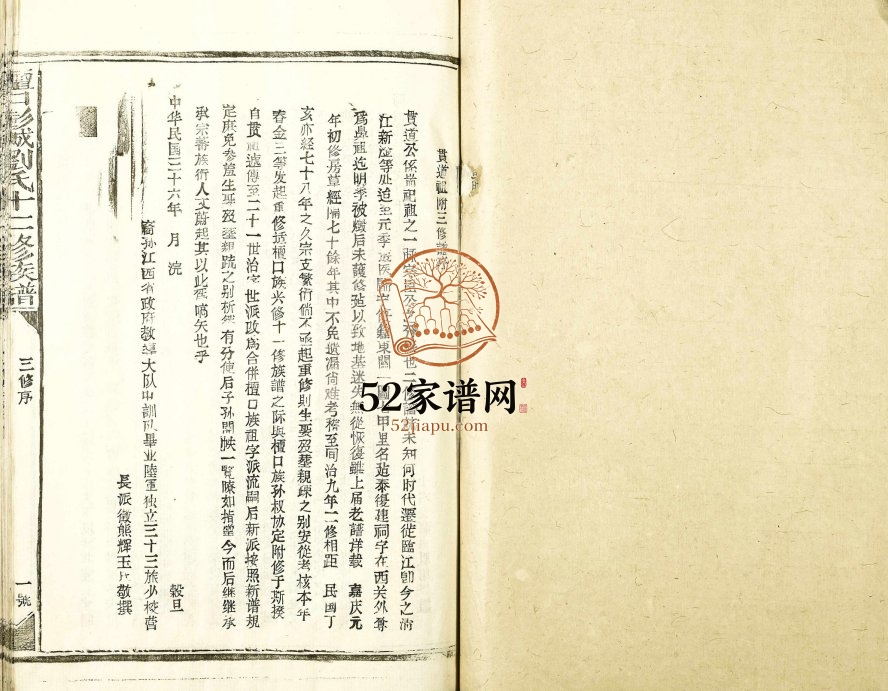 貫道祖附三修譜序
貫道公係
之一
也
未知何时代遷從臨江卽今之清
江新淦等处迨至元季
東關一圖
甲里名
泰復建祠字在西关外尊
爲鼻祖迨明季被燬后未護修
以致地基迷失無從恢復雖上届老譜詳载 嘉庆元
年初修房草經隔七十餘年其中不免遺漏尙难考稽至同治九年二修相距 民國丁
亥亦経七十八年之久宗支繁衍倘不亟起重修則生娶殁塟親疎之别安從考核本年
春金三等发起重修适檀口族兴修十一修族譜之际與檀口族孙叔协定附修于斯揆
自貫
遠傳至二十一世治字 世派改為合併檀口族祖字派流嗣后新派按照新谱規
定庶免参差生娶殁塟親疏之别析然有分使后子孙開帙一覧瞭如指掌今而后继继承
承宗蕃族衍人文蔚起其以此
嚆矢也乎
中华民国三十六年 月 浣 穀旦
裔孙江西省政府教
大队中訓队畢业陸軍独立三十三旅少校营
長派徵熊輝玉
敬撰
檀口彭城刘氏十二修族譜
三修序
一號
52家谱网
52jiapu.com